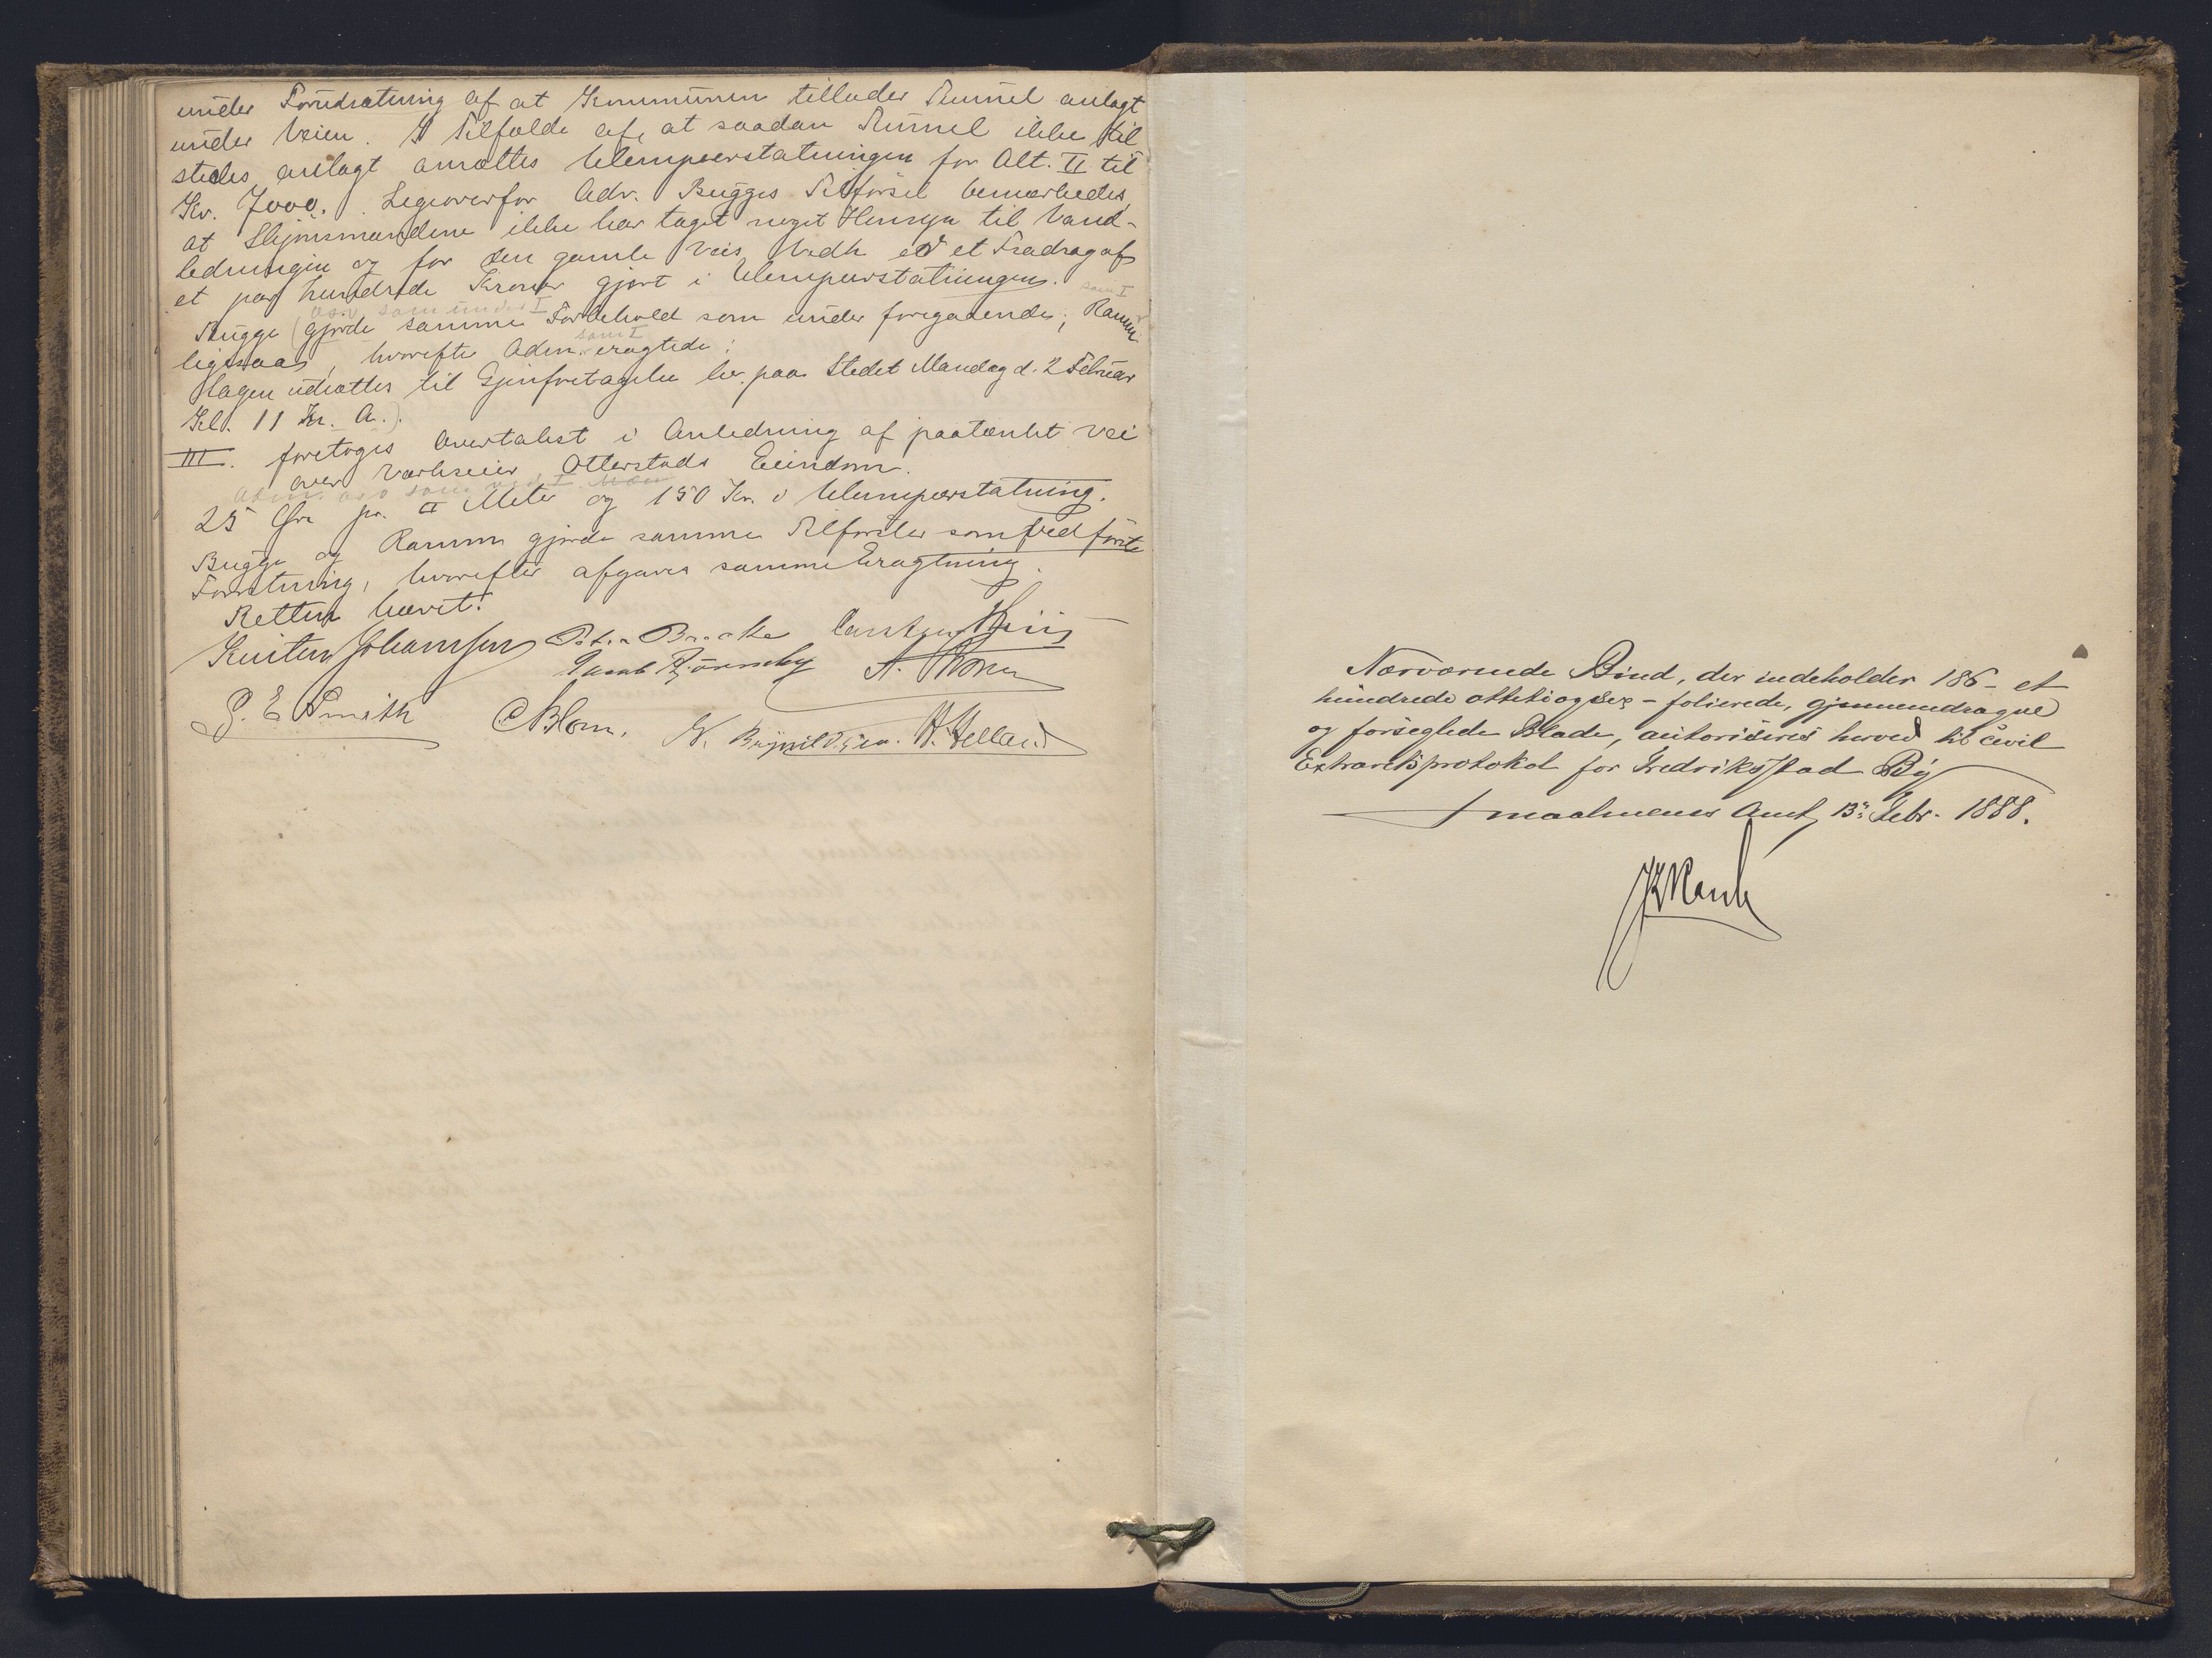 under Forudsætning af at Kommunen tillader Tunnel anlagt
under Veien. I Tilfælde af, at saadan Tunnel ikke til
stedes anlagt ansættes Ulempeerstatningen for Alt. II til
Kr. 7000. Ligeoverfor Adv. Bugges Tilførsel bemærkedes,
at Skjønsmændene ikke har taget noget Hensyn til Vand-
ledningen og for den gamle Veis Vedk er et Fradrag af
et par hundrede Kroner gjort i Ulempeerstatningen.
som I
osv som under I
Bugge (gjorde samme Forbehold som under foregaaende; Ramm
som I
ligesaa, hvorefter Adm. eragtede:
Sagen udsættes til Gjenforetagelse her paa Stedet Mandag d. 2 Februar
Kl. 11 Fr. A.).
III. foretoges Averteret i Anledning af paatænkt Vei
over Værkseier Otterstads Eiendom.
Adm. osv som ved I
25 Øre pr. □ Meter og 150 Kr. i Ulempeerstatning.
Bugge og Ramm gjorde samme Tilførsler som ved første
Forretning, hvorefter afgaves samme Eragtning.
Retten hævet.
Johannsen Peter Bracke Carsten
Jacob Bjørneby A.
P. E Smith C Blom. N. H. Helland
Nærværende Bind, der indeholder 186 - et
hundrede ottetiogsex - folierede, gjennemdragne
og forseglede Blade, autoriseres herved til civil
Extraretsprotokol for Fredriksstad By
Smaalenenes Amt, 13: Febr. 1888.